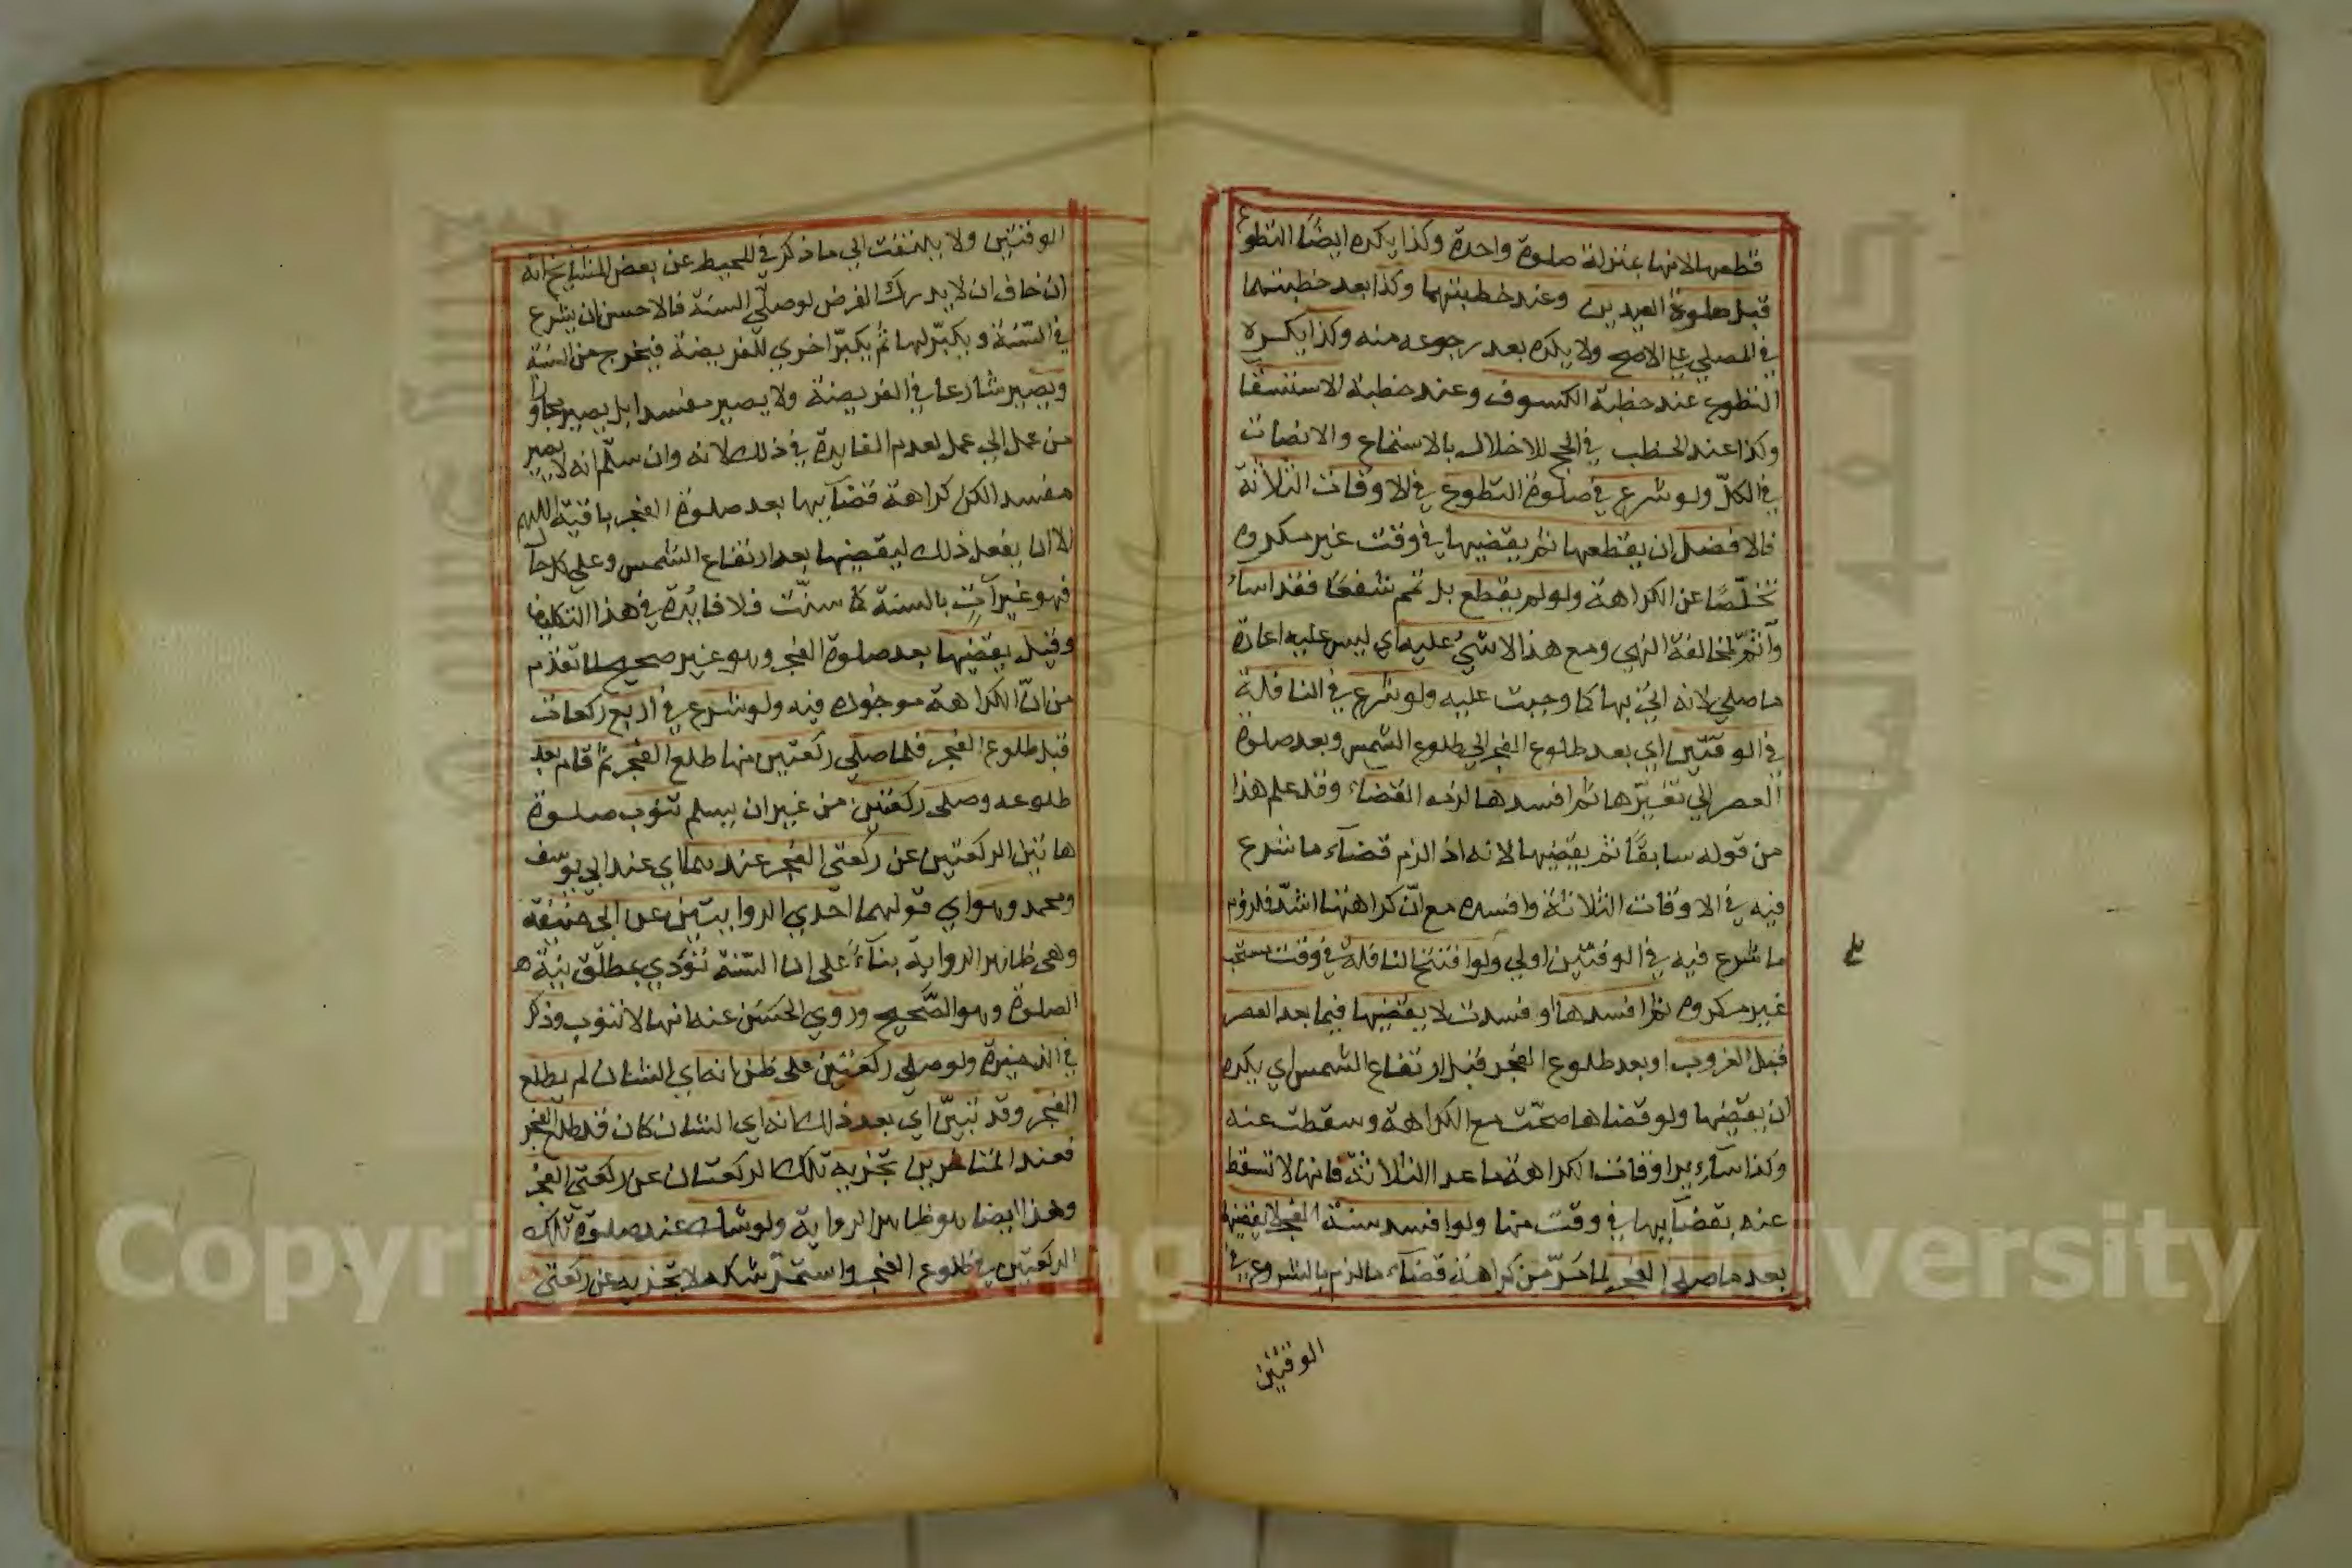 قطعها لانها بمنزلة صلوة واحدة وكذا يكره ايضًا التطوع
قبل صلوة العيدين وعند خطبتهما وكذا بعد خطبتهما
في المصلي علي الاصح ولا يكره بعد رجوعه منه وكذا يكره
التطوع عند خطبة الكسوف وعند خطبة الاستسقا
وكذا عند الخطب في الحج للاخلال بالاستماع والانصات
في الكلّ ولو شرع في صلوة التطوع في الاوقات الثلاثة
فالافضل ان يقطعها ثم يقضيها في وقت غير مكروه
تخلّصًا عن الكراهة ولو لم يقطع بل تمم شفعًا فقد اساء
وأثم لمخالفة النهي ومع هذا لا شيء عليه اي ليس عليه اعادة
ما صلي لانه اتي بها كما وجبت عليه ولو شرع في النافلة
في الوقتين اي بعد طلوع الفجر الي طلوع الشمس وبعد صلوة
العصر الي تغيّرها ثم افسدها لزمه القضاء وقد علم هذا
من قوله سابقًا ثم يقضيها لانه اذا لزم قضاء ما شرع
فيه في الاوقات الثلاثة وافسده مع انّ كراهتها اشدّ فلزوم
ما شرع فيه في الوقتين اولي ولو افتتح النافلة في وقت مستحب
غير مكروه ثم افسدها او فسدت لا يقضيها فيما بعد العصر
قبل الغروب او بعد طلوع الفجر قبل ارتفاع الشمس اي يكره
ان يقضيها ولو قضاها صحّت مع الكراهة وسقطت عنه
وكذا سائر اوقات الكراهة ما عدا الثلاثة فانها لا تسقط
عنه بقضائها في وقت منها ولو افسد سنة الفجر لا يقضيها
بعد ما صلي الفجر لما مرّ من كراهة قضاء ما لزم بالشروع في
الوقتين
الوقتين ولا يلتفت الي ما ذكر في المحيط عن بعض المشايخ انه
ان خاف ان لا يدرك الفرض لو صلّي السنة فالاحسن ان يشرع
في السّنة ويكبّر لها ثم يكبّر اخري للفريضة فيخرج من السنة
ويصير شارعا في الفريضة ولا يصير مفسدا بل يصير مجاوزا
من عمل الي عمل لعدم الفايدة في ذلك لانه وان سلّم انه لا يصير
مفسد الكن كراهة قضائها بعد صلوة الفجر باقية اللهم
الا ان يفعل ذلك ليقضيها بعد ارتفاع الشمس وعلي كل حال
فهو غير آتٍ بالسنة كما سنّت فلا فايدة في هذا التكليف
وقيل يقضيها بعد صلوة الفجر وهو غير صحيح لما تقدّم
من انّ الكراهة موجوده فيه ولو شرع في اربع ركعات
قبل طلوع الفجر فلما صلي ركعتين منها طلع الفجر ثم قام بعد
طلوعه وصلي ركعتين من غير ان يسلم تنوب صلوة
هاتين الركعتين عن ركعتي الفجر عندهما اي عند ابي يوسف
ومحمد وهو اي قولهما احدي الروايتين عن ابي حنيفة
وهي ظاهر الرواية بناءً على ان السّنة تؤدّي بمطلق نية
الصلوة وهو الصّحيح وروي الحسَن عنه انها لا تنوب وذكر
في الذخيرة ولو صلي ركعتين علي ظن انه اي الشان لم يطلع
الفجر وقد تبيّن اي بعد ذلك انه اي الشان كان قد طلع الفجر
فعند المتاخرين تجزيه تلك الركعتان عن ركعتي الفجر
وهذا ايضا هو ظاهر الرواية ولو شك عند صلوة تلك
الركعتين في طلوع الفجر واستمرّ شكه لا تجزيه عن ركعتي